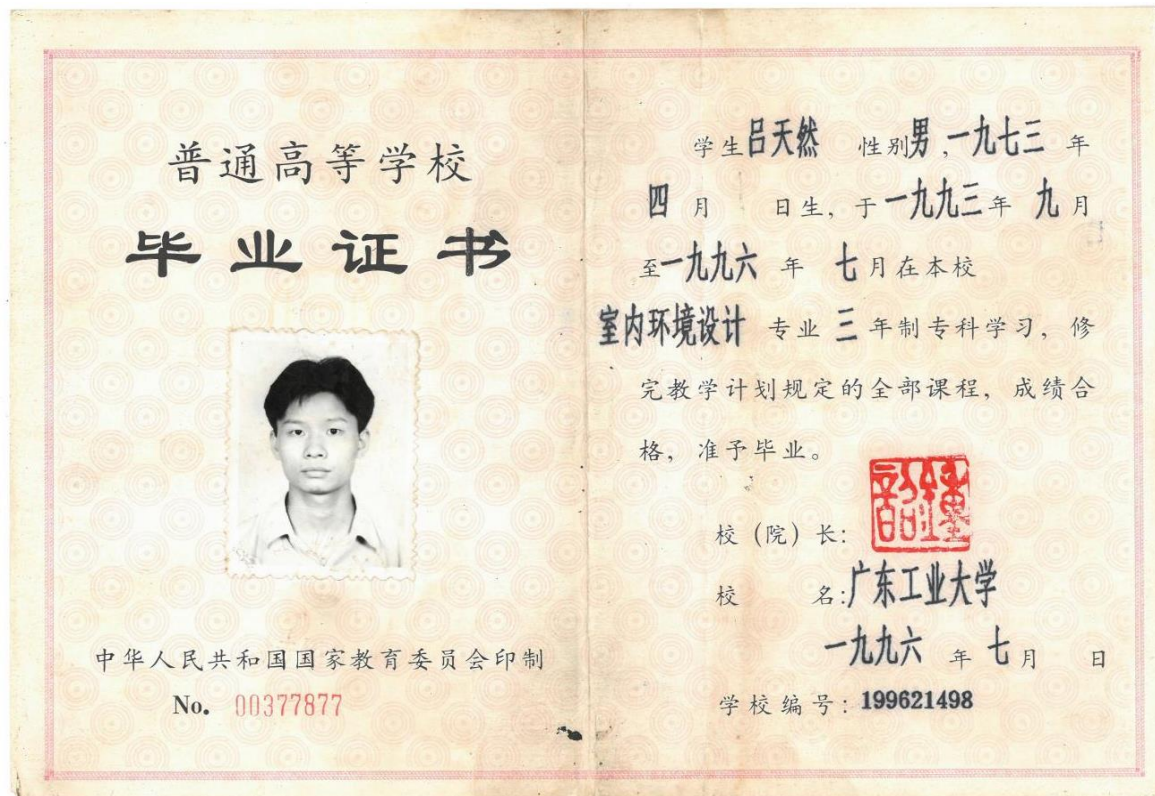 普通高等学校
毕业证书
中华人民共和国国家教育委员会印制
No. 00377877
学生吕天然 性别男,一九七三 年
四 月 日生, 于一九九三年 九月
至一九九六 年 七月在本校
室内环境设计 专业 三 年制专科学习, 修
完教学计划规定的全部课程, 成绩合
格, 准予毕业。
校 (院) 长:
校 名:广东工业大学
一九九六 年 七月 日
学校编号: 199621498